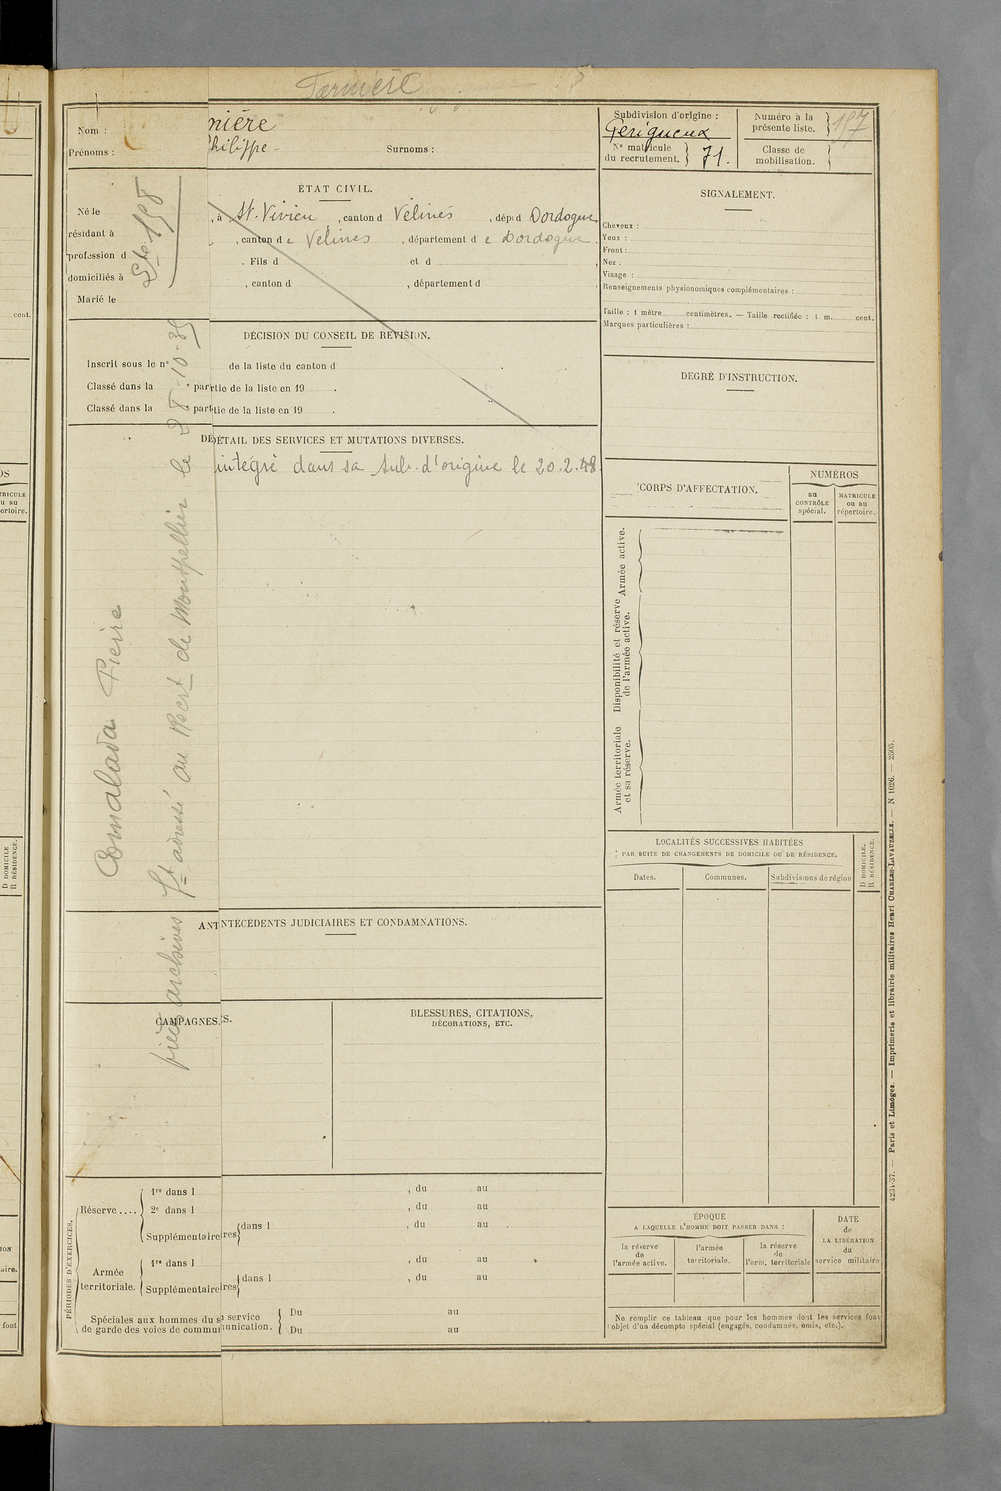 Ternière
Nom :
nière
Prénoms :
Philippe
Surnoms :
Subdivision d'origine :
Perigueux
N° matricule du recrutement. 71.
Numéro à la présente liste. 197
Classe de mobilisation.
ÉTAT CIVIL.
Né le , à St. Vivien , canton d Vélines , dép d Dordogne
résidant à , canton de Vélines , département de Dordogne.
profession d . Fils d et d ,
domiciliés à , canton d , département d
Marié le
Ste 198
DÉCISION DU CONSEIL DE RÉVISION.
Inscrit sous le n° de la liste du canton d .
Classé dans la ° partie de la liste en 19 .
Classé dans la partie de la liste en 19 .
DÉTAIL DES SERVICES ET MUTATIONS DIVERSES.
intégré dans sa sub. d'origine le 20.2.48
Comalada Pierre
archives
adressé au Rect de Montpellier le 28-10-39
ANTÉCÉDENTS JUDICIAIRES ET CONDAMNATIONS.
CAMPAGNES.
BLESSURES, CITATIONS,
DÉCORATIONS, ETC.
PÉRIODES D'EXERCICES.
Réserve....
1re dans l , du au
2e dans l , du au
Supplémentaires dans l , du au .
Armée territoriale.
1re dans l , du au
Supplémentaires dans l , du au
Spéciales aux hommes du service
de garde des voies de communication.
Du au
Du au
SIGNALEMENT.
Cheveux :
Yeux :
Front :
Nez :
Visage :
Renseignements physionomiques complémentaires :
Taille : 1 mètre centimètres. — Taille rectifiée : 1 m. cent.
Marques particulières :
DEGRÉ D'INSTRUCTION.
CORPS D'AFFECTATION.
NUMÉROS
au CONTRÔLE spécial.
MATRICULE ou au répertoire.
Armée active.
Disponibilité et réserve de l'armée active.
Armée territoriale et sa réserve.
LOCALITÉS SUCCESSIVES HABITÉES
PAR SUITE DE CHANGEMENTS DE DOMICILE OU DE RÉSIDENCE.
D DOMICILE.
R RÉSIDENCE.
Dates.
Communes.
Subdivisions de région
ÉPOQUE
A LAQUELLE L'HOMME DOIT PASSER DANS :
la réserve de l'armée active.
l'armée territoriale.
la réserve de l'arm. territoriale
DATE
de
LA LIBÉRATION
du
service militaire
Ne remplir ce tableau que pour les hommes dont les services font
l'objet d'un décompte spécial (engagés, condamnés, omis, etc.).
4254-37. — Paris et Limoges. — Imprimerie et librairie militaires Henri CHARLES-LAVAUZELLE. — N 1026. — 2505.
cent.
D DOMICILE
R RÉSIDENCE.
font